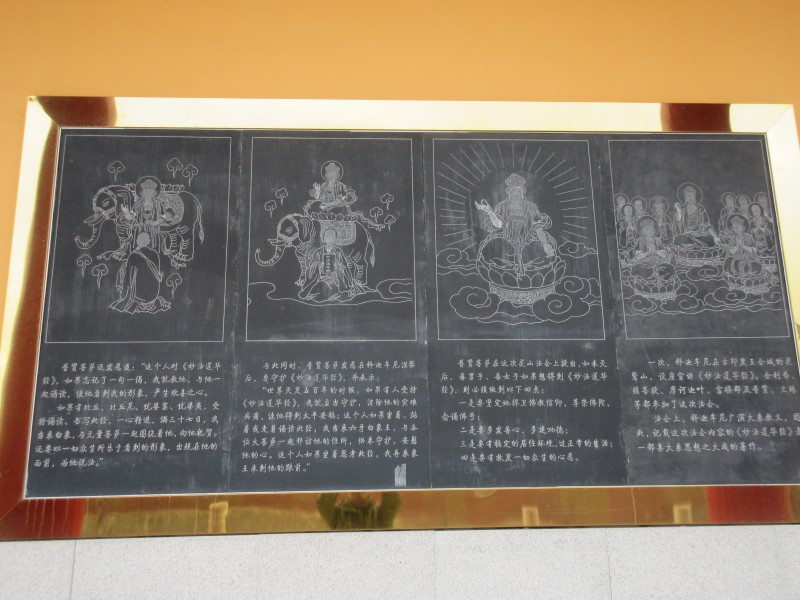 普贤菩萨还发愿道：“这个人对《妙法莲华
经》，如果忘记了一句一偈，我就教他，与他一
起诵读，使他看到我的形象，产生欢喜之心。
如果有比丘、比丘尼、优婆塞、优婆夷，受
持诵读、书写此经，一心精进，满三十七日，我
当乘白象，与无量菩萨一起围绕着他，向他祝贺。
还要以一切众生所乐于看到的形象，出现在他的
面前，为他说法。”
与此同时，普贤菩萨发愿在释迦牟尼涅槃
后，要守护《妙法莲华经》，并表示：
“世尊灭度五百年的时候，如果有人受持
《妙法莲华经》，我就应当守护，消除他的灾难
病痛，使他得到太平安稳；这个人如果坐着、站
着或走着诵读此经，我当乘六牙白象王，与各
位大菩萨一起拜访他的住所，供养守护，安慰
他的心。这个人如果坐着思考此经，我再乘象
王来到他的跟前。”
普贤菩萨在这次灵山法会上提出，如来灭
后，善男子、善女子如果想得到《妙法莲华经》，
则必须做到以下四点：
一是要坚定地捍卫佛教信仰，尊崇佛陀，
会诵佛号；
二是要多发善心，多建功德；
三是要有稳定的居住环境，过正常的生活；
四是要有救度一切众生的心愿。
一次，释迦牟尼在古印度王舍城的灵
鹫山，设座宣讲《妙法莲华经》，舍利弗、
须菩提、摩诃迦叶、富楼那及普贤、文殊
等都参加了这次法会。
法会上，释迦牟尼广演大乘教义，因
此，记载这次法会内容的《妙法莲华经》是
一部集大乘思想之大成的著作。